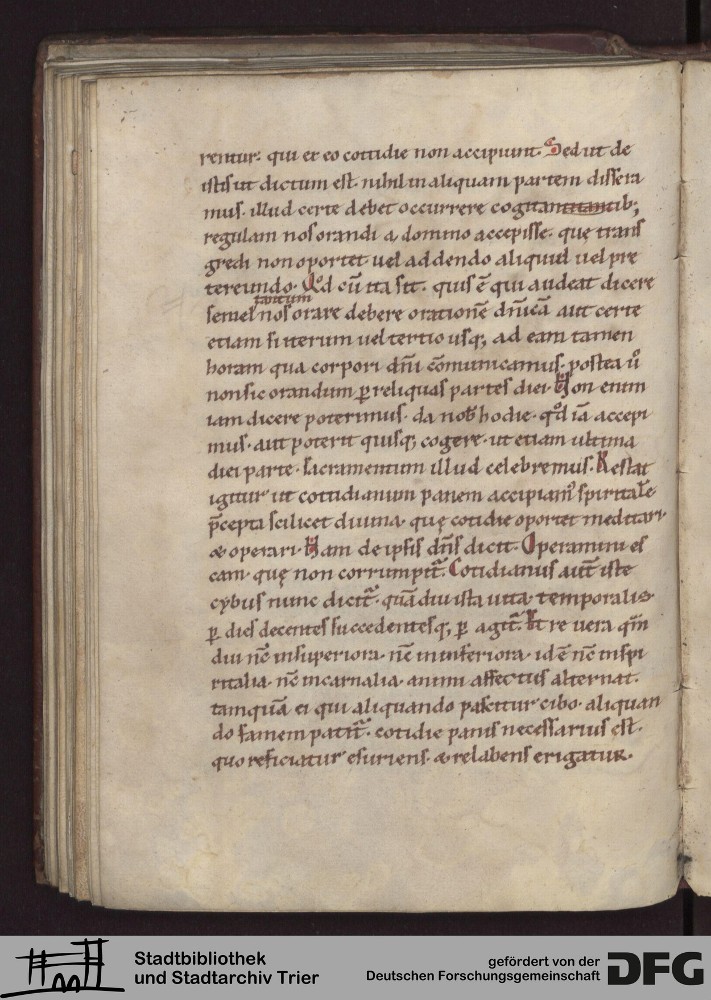 rentur. qui ex eo cottidie non accipiunt. Sed ut de
istis ut dictum est. nihil in aliquam partem dissera
mus. illud certe debet occurrere cogitantetantib;
regulam nos orandi a domino accepisse. quę trans
gredi non oportet. uel addendo aliquid uel pre
tereundo. Qd cū ita sit. quis ē qui audeat dicere
tantum
semel nos orare debere orationē dn̄icā aut certe
etiam si iterum uel tertio usq; ad eam tamen
horam qua corpori dn̄i cōmunicamus. postea u̅
non sic orandum ꝑ reliquas partes diei. Non enim
iam dicere poterimus. da nob̄ hodie. qd̄ iā accepi
mus. aut poterit quisq; cogere. ut etiam ultima
diei parte. sacramentum illud celebremus. Restat
igitur ut cottidianum panem accipiam᾽ spiritale.
p̄cepta scilicet diuina. quę cotidie oportet meditari.
& operari. Nam de ipsis dn̄s dicit. Operamini es
cam. quę non corrumpit̄. Cotidianus aut̄ iste
cybus nunc dicit̄. quādiu ista uita temporalis.
ꝑ dies decentes succedentesq; ꝑagit̄. Et re uera
diu nc̄ in superiora. nc̄ in inferiora. id ē nc̄ in spi
ritalia. nc̄ in carnalia. animi affectus alternat.
tamquā ei qui aliquando pascitur cibo. aliquan
do famem patit̄. cotidie panis necessarius est.
quo reficiatur esuriens. & relabens erigatur.
Stadtbibliothek
und Stadtarchiv Trier
gefördert von der
Deutschen Forschungsgemeinschaft
DFG